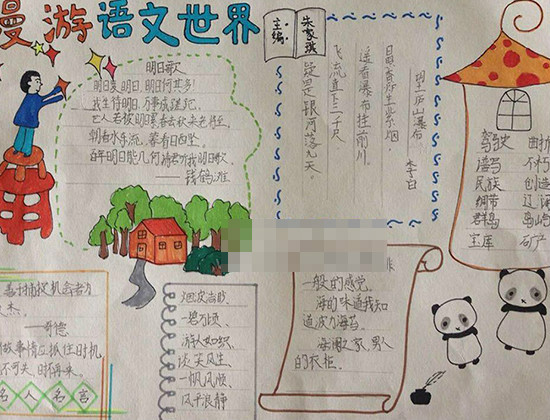 漫游语文世界
主编:
明日歌
明日复明日,明日何其多!
我生待明日,万事成蹉跎。
世人若被明日累,春去秋来老将至。
朝看水东流,暮看日西坠。
百年明日能几何?请君听我明日歌
——钱鹤滩
望庐山瀑布
李白
日照香炉生紫烟,
遥看瀑布挂前川,
飞流直下三千尺
疑是银河落九天。
驾驶
骏马 不朽
民族 创造
绸带 辽
群岛 岛屿
宝库 矿产
善于捕捉机会者为
杰。
——歌德
做事情应抓住时机
不可失,时不再来。
名人名言
烟波浩渺、
一碧万顷、
游人如织、
谈笑风生、
一帆风顺
风平浪静
一般的感觉。
海的味道我知
道波力海苔。
海澜之家,男人
的衣柜。